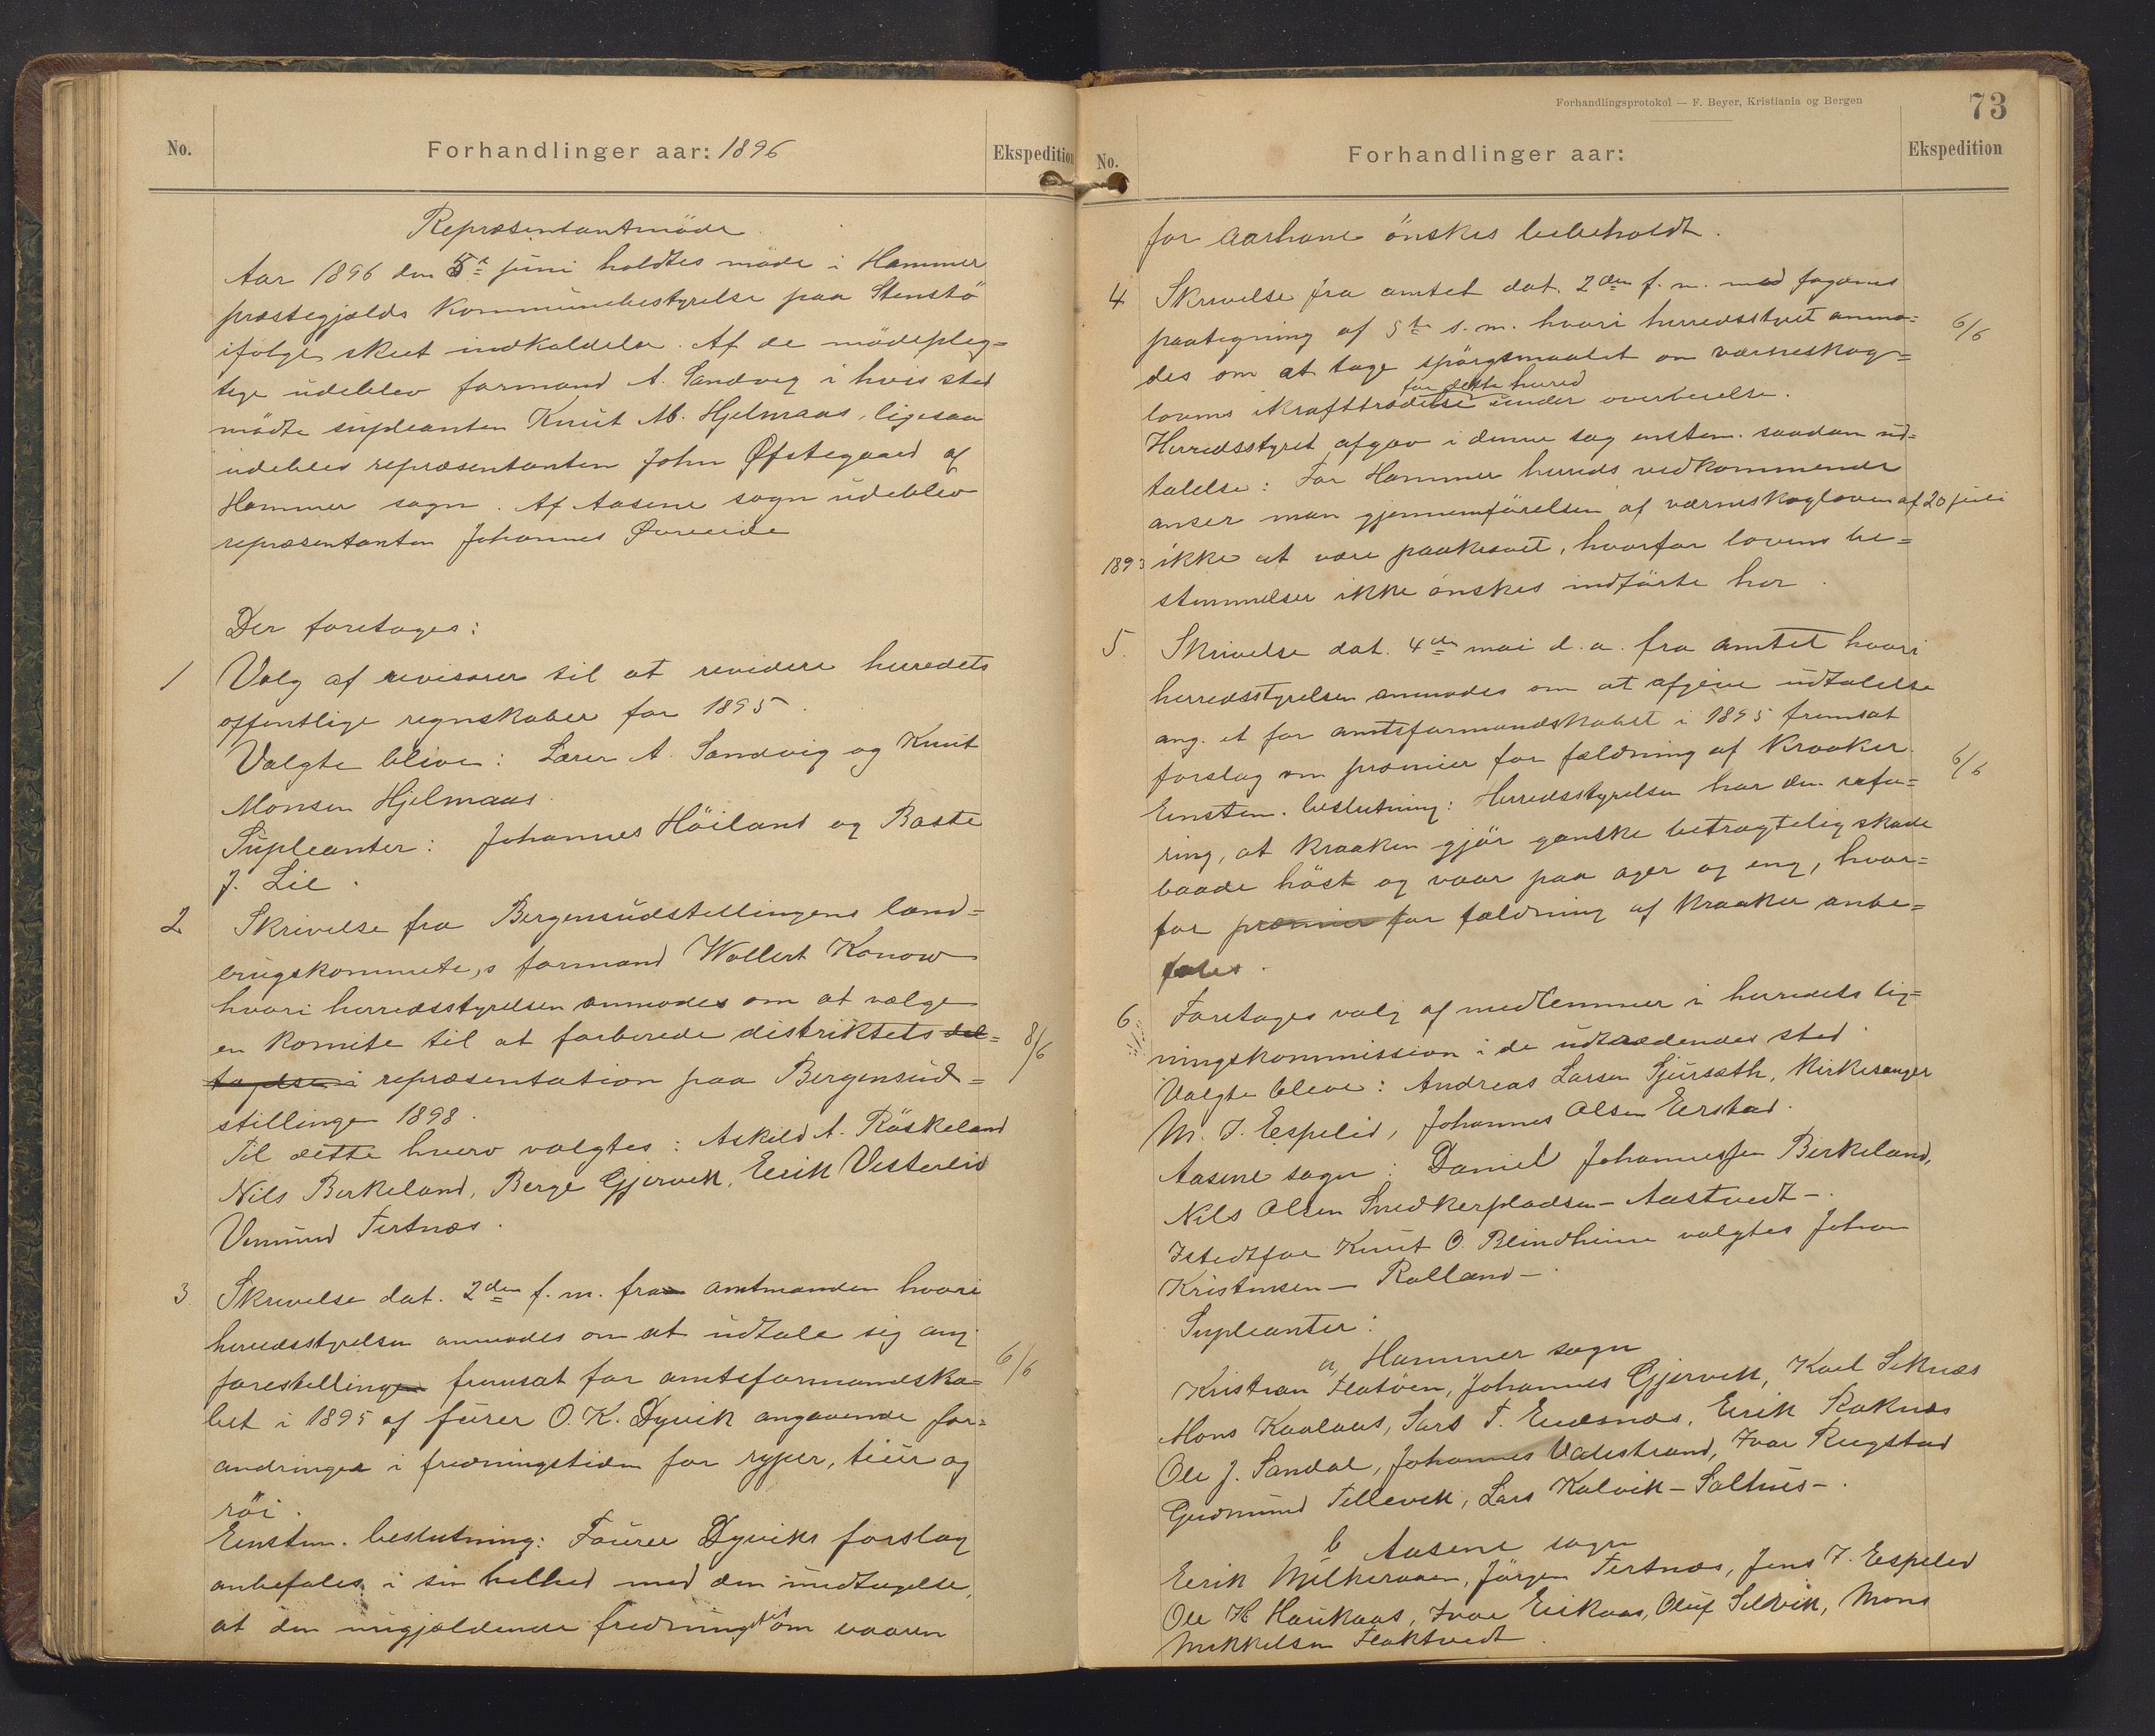 No.
Forhandlinger aar: 1896
Ekspedition
Repræsentantmöde
Aar 1896 den 5te juni holdtes möde i Hammer
præstegjælds kommunebestyrelse paa Stenstö
ifölge skeet indkaldelse. Af de mödeplig=
tige udeblev formand A. Sandvig i hvis sted
mödte supleanten Knut M. Hjelmaas, ligesaa
udeblev repræsentanten John Øfstegaard af
Hammer sogn. Af Aasene sogn udeblev
repræsentanten Johannes Øvreeide
Der foretages:
1 Valg af revisorer til at revidere herredets
offentlige regnskaber for 1895.
Valgte bleve: Lærer A. Sandvig og Knut
Monsen Hjelmaas.
Supleanter: Johannes Höiland og Baste
J. Lie.
2 Skrivelse fra Bergensudstillingens land=
brugskommite,s formand Wollert Konow
hvori herredsstyrelsen anmodes om at vælge
en komite til at forberede distriktets del=
tagelse i repræsentation paa Bergensud=
stillingen 1898. 8/6
Til dette hverv valgtes: Askild A. Röskeland
Nils Birkeland, Berge Gjervik, Eirik Vestereid
Vemund Tertnæs.
3 Skrivelse dat. 2den f. m. fra amtmanden hvori
herredsstyrelsen anmodes om at udtale sig ang.
forestillingen fremsat for amtsformandska= 6/6
bet i 1895 af furer O. K. Dyvik angaaende for=
andringer i fredningstiden for ryper, tiur og
röi.
Enstem. beslutning: Fourer Dyviks forslag
anbefales i sin helhed med den undtagelse,
at den nugjældende fredningstid om vaaren
Forhandlingsprotokol — F. Beyer, Kristiania og Bergen
73
No.
Forhandlinger aar:
Ekspedition
for aarhane önskes bibeholdt.
4 Skrivelse fra amtet dat. 2den f. m. med fogdens
paategning af 5te s. m. hvori herredsstyret anmo= 6/6
des om at tage spörgsmaalet om værneskog=
for dette herred
lovens ikrafttrædelse under overveielse.
Herredsstyret afgav i denne sag enstem. saadan ud=
talelse: For Hammer herreds vedkommende
anser man gjennemförelsen af værneskogloven af 20 juli
1893 ikke at være paakrævet, hvorfor lovens be=
stemmelser ikke önskes indförte her.
5. Skrivelse dat. 4de mai d. a. fra amtet hvori
herredsstyrelsen anmodes om at afgive udtalelse
ang. et for amtsformandskabet i 1895 fremsat
forslag om præmier for fældning af kraaker. 6/6
Enstem. beslutning: Herredsstyrelsen har den erfa=
ring, at kraaken gjör ganske betragtelig skade
baade höst og vaar paa ager og eng, hvor=
for præmier for fældning af kraaker anbe=
fales.
6. Foretages valg af medlemmer i herredets lig=
ningskommission i de udtrædendes sted.
Valgte bleve: Andreas Larsen Gjersæth, kirkesanger
M. J. Espelid, Johannes Olsen Eerstad.
Aasene sogn: Daniel Johannessen Birkeland,
Nils Olsen Snedkerpladsen - Aastvedt -.
Istedtfor Knut O. Blindheim valgtes Johan
Kristensen - Rolland -.
Supleanter:
a, Hammer sogn
Kristian Flatöen, Johannes Gjervik, Karl Siknæs
Mons Kaalaas, Lars T. Eidsnæs, Eirik Röknæs
Ole J. Sandal, Johannes Valestrand, Ivar Rugstad
Gudmund Tellevik, Lars Kalvik - Salhus -.
b Aasene sogn
Eirik Mjelkeraaen, Jörgen Tertnæs, Jens J. Espelid
Ole H. Haukaas, Ivar Eirkaas, Oluf Selvik, Mons
Mikkelsen Flaktvedt.